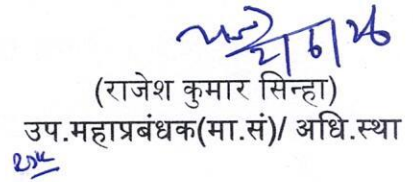 2/6/26
(राजेश कुमार सिन्हा)
उप.महाप्रबंधक(मा.सं)/ अधि.स्था